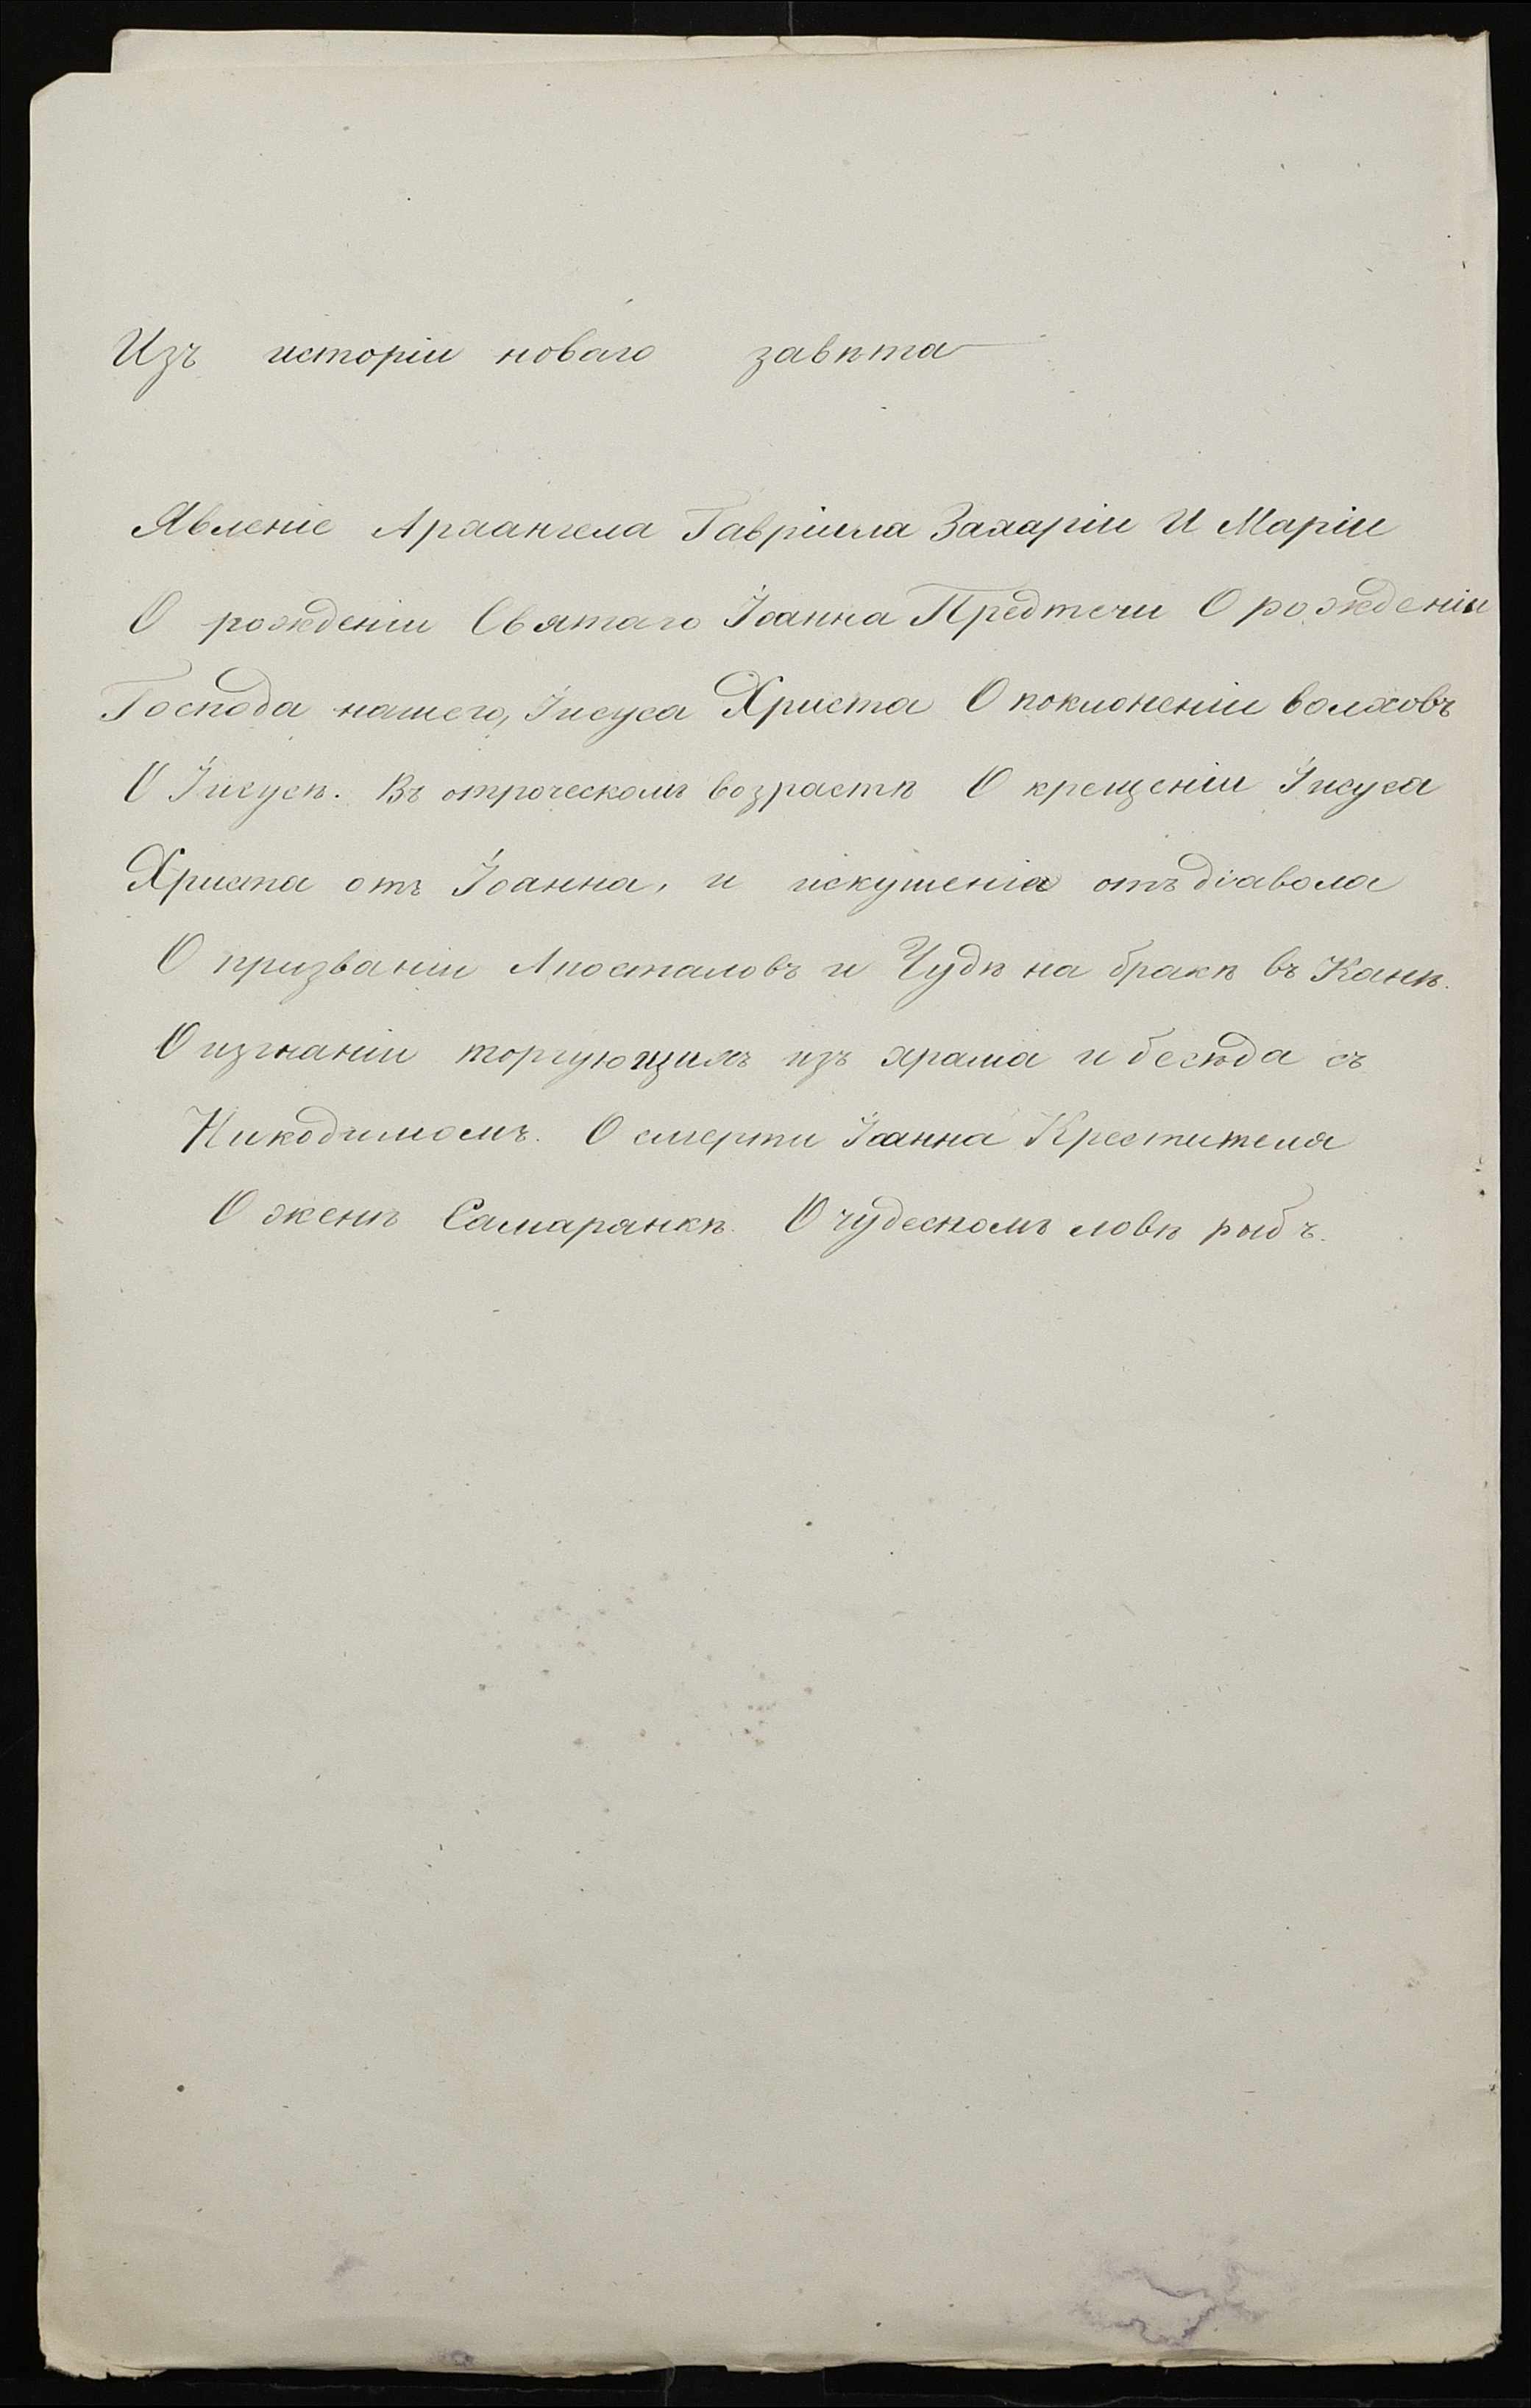 Изъ исторіи новаго завѣта
Явленіе Архангела Гавріила Захаріи И Маріи
О рожденіи Святаго Іоанна Предтечи О рожденіи
Господа нашего, Іисуса Христа О поклоненіи волховъ
О Іисусѣ. Въ отроческомъ возрастѣ О крещеніи Іисуса
Христа отъ Іоанна, и искушенія отъ діавола
О призваніи Апосталовъ и Чудѣ на бракѣ въ Канѣ.
О изгнаніи торгующихъ изъ храма и бесѣда съ
Никодимомъ. О смерти Іоанна Крестителя
О женѣ Самарянкѣ. О чудесномъ ловѣ рыбъ.